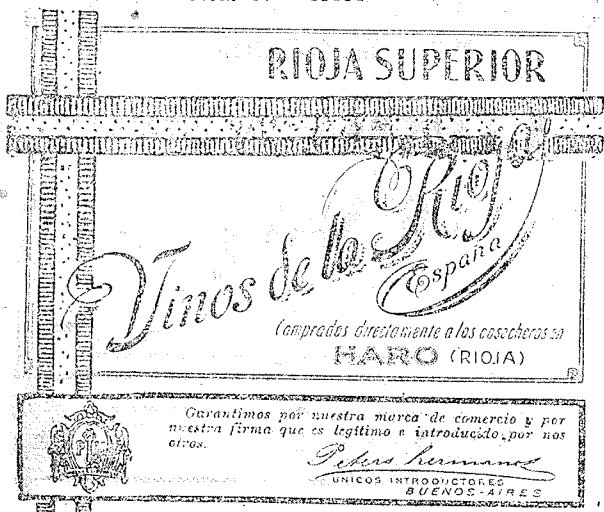 RIOJA SUPERIOR
Vinos de la Rioja
España
Comprados directamente a los cosecheros en
HARO (RIOJA)
Garantimos por nuestra marca de comercio y por
nuestra firma que es legítimo e introducido por nos
otros.
Peters hermanos
UNICOS INTRODUCTORES
BUENOS-AIRES